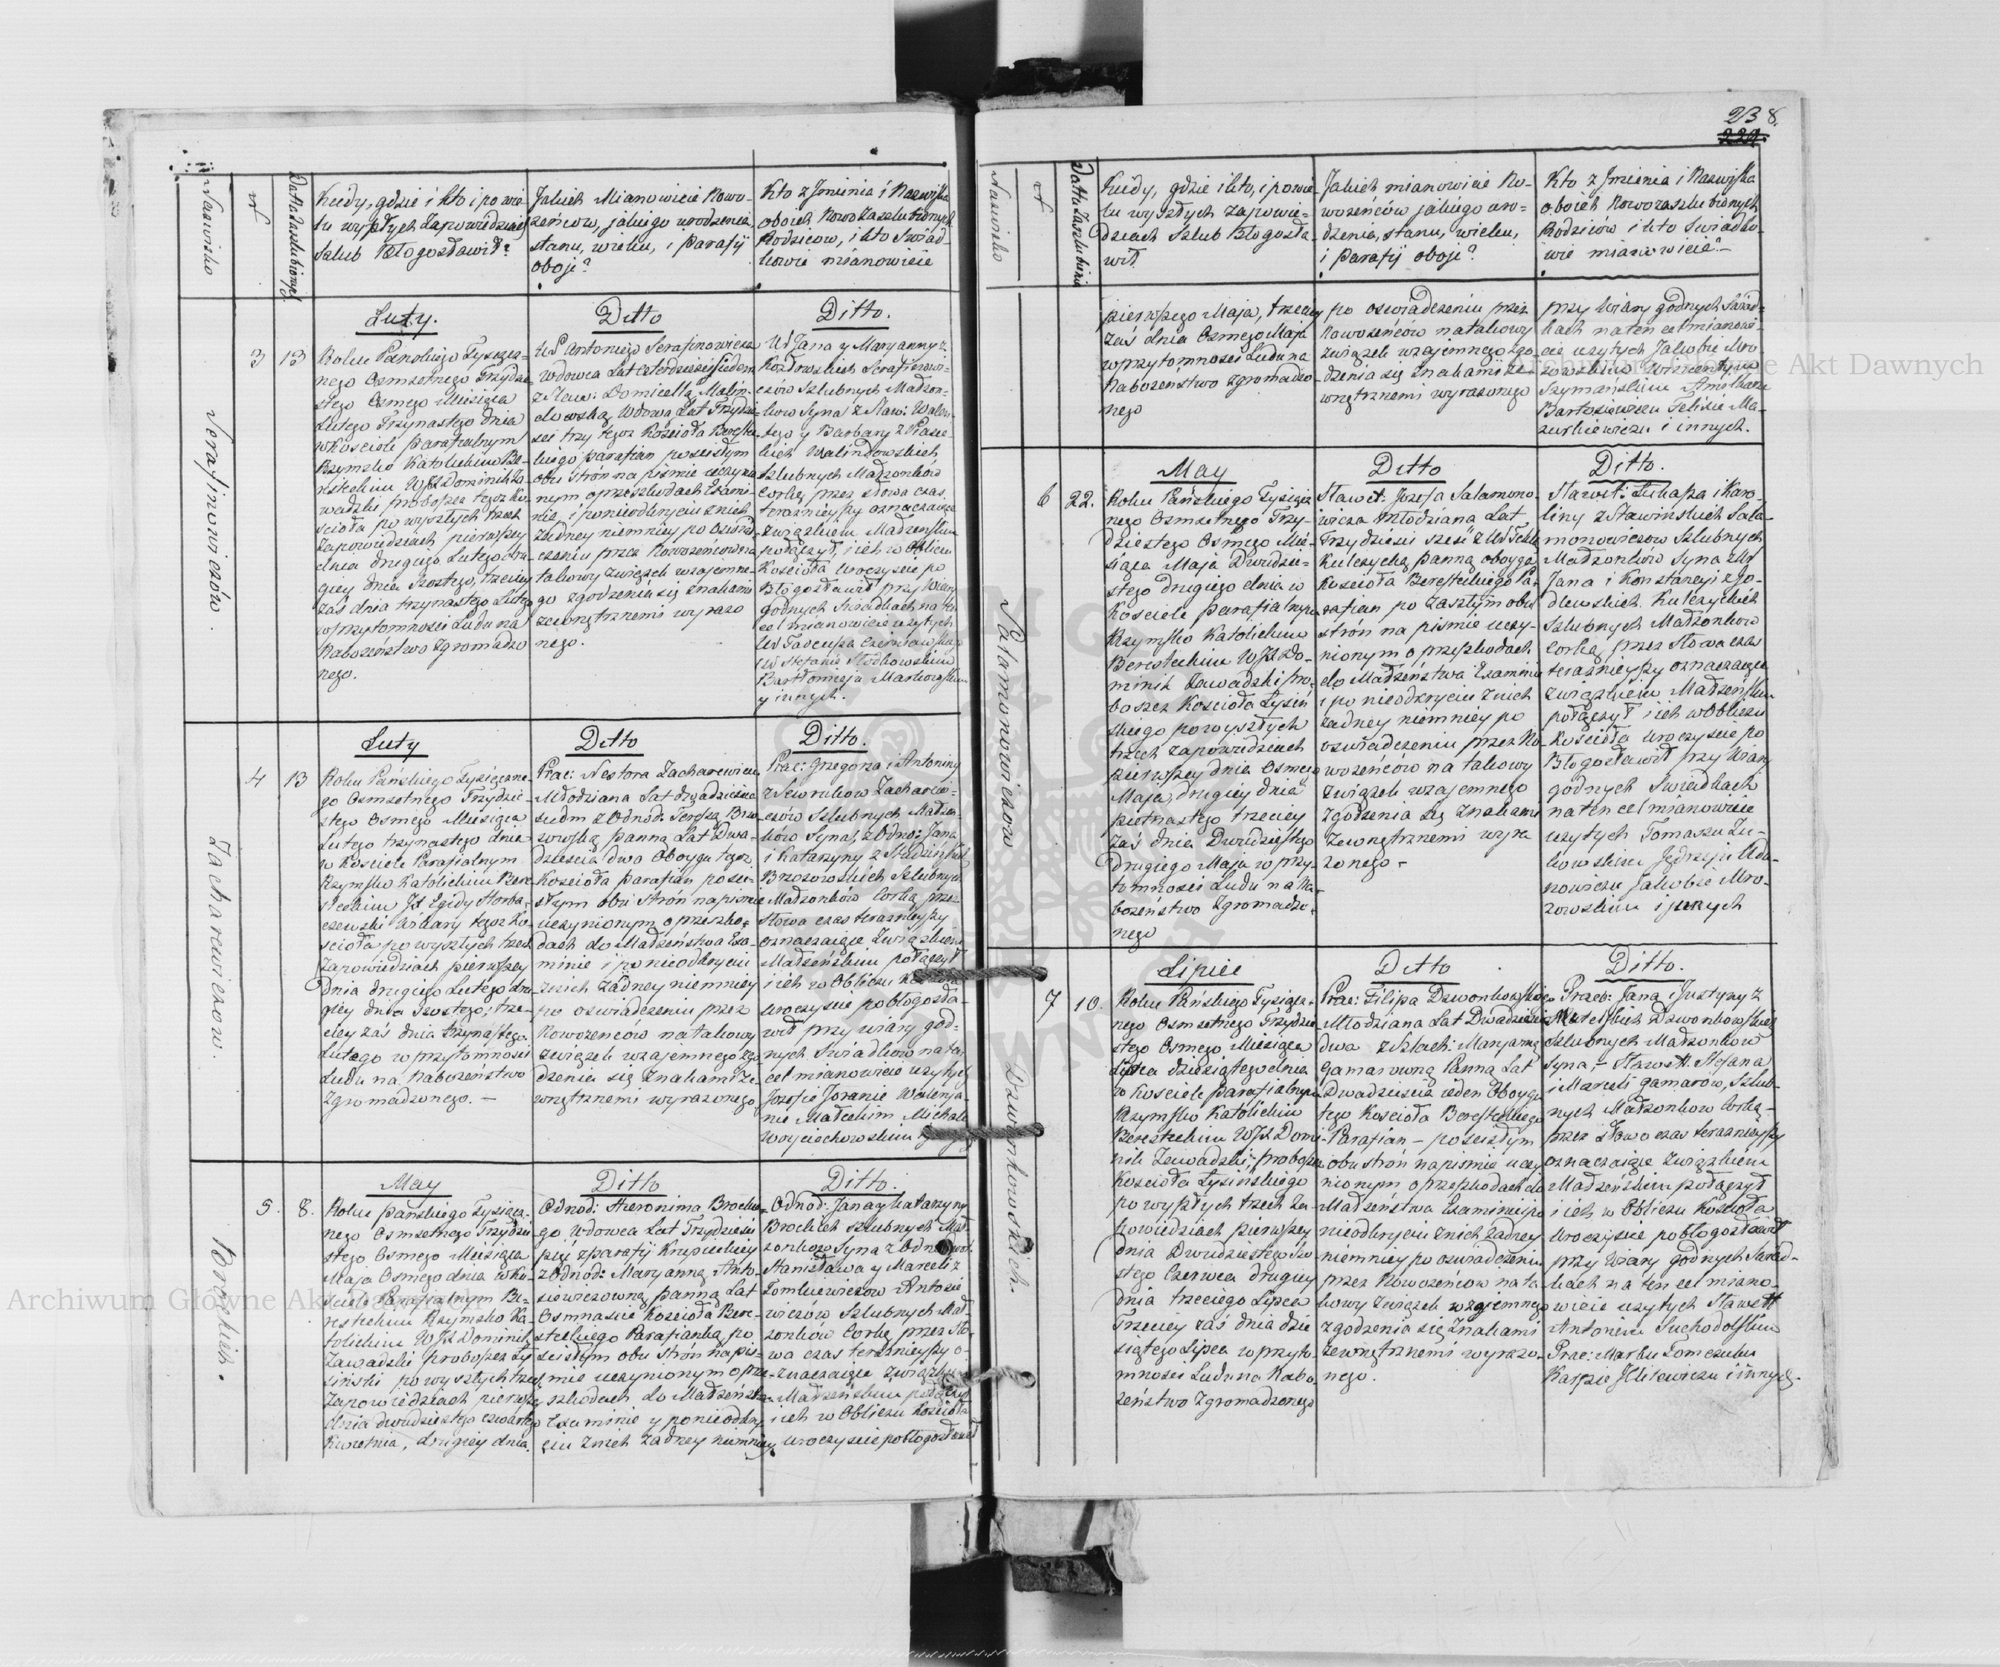 238.
229.
Nazwisko
N
Datta Zaszlubionych
Kiedy, gdzie i kto i po wie-
lu wyszłych Zapowiedziach
Szlub Błogosławił?
Jakich Mianowicie Nowo-
zeńców, jakiego urodzenia,
stanu, wieku, i Parafij
oboje?
Kto z Jmienia i Nazwiska
oboich Nowozaszlubionych
Rodziców, i kto Swiad-
kowie mianowicie
Serafinowiczów.
3
13
Luty.
Roku Panskiego Tysiącz-
nego Osmsetnego Trzydzie
stego Osmego Miesiąca
Lutego Trzynastego dnia
w Kosciele parafialnym
Rzymsko Katolickim Be-
resteckim WJX Dominik Za-
wadzki proboszcz tegoz Ko-
scioła po wyszłych trzech
Zapowiedziach pierwszey
dnia drugiego Lutego, dru-
giey dnia Szostego, trzeciey
zaś dnia trzynastego Lutego
w przytomnosci Ludu na
Nabozenstwo Zgromadzo
nego.
Ditto
UP Antoniego Serafinowicza
Wdowca Lat czterdziescisiedem
z Sław: Domicellą Malin-
dowską Wdową Lat Trzydzie-
sci trzy tegoz Koscioła Bereste-
ckiego parafian po zeszłym
obu strón na pismie uczynio
nym o przeszkodach Exami-
nie, i po nieodkryciu z nich
zadney niemniey po oswiad-
czeniu przez Nowozenców na
takowy związek wzajemne-
go zgodzenia się znakami
zewnętrznemi wyrazo
nego.
Ditto.
UP Jana y Maryanny z
Kozłowskich Serafinowi-
czów Szlubnych Małzon-
ków Syna z Sław: Walen-
tego y Barbary z Piase-
ckich Malindowskich
Szlubnych Małzonków
Corkę, przez słowa czas
teraznieyszy oznaczaiące
związkiem Małzenskim
połączył, i ich w Obliczu
Koscioła Uroczyscie po
Błogosławił przy Wiary
godnych Swiadkach na ten
cel mianowicie uzytych
UP Tadeuszu
UP Stefanie Słodkowskim
Bartłomieju Markowskim
y innych.
Zacharewiczow.
4
13
Luty
Roku Pańskiego Tysiączne-
go Osmsetnego Trzydzie-
stego Osmego Miesiąca
Lutego trzynastego dnia
w Kosciele Parafialnym
Rzymsko Katolickim Bere
steckim JX Egidy Horba-
czewski Wikary tegoz Ko-
scioła po wyszłych trzech
Zapowiedziach pierwszey
dnia drugiego Lutego dru-
giey dnia Szostego, trze-
ciey zaś dnia trzynastego
Lutego w przytomnosci
Ludu na Nabozenstwo
Zgromadzonego. —
Ditto
Prac: Nestora Zacharewicza
Młodziana Lat dwadziescia
siedm z Odnod: Teressą Brzo
zowską panną Lat Dwa-
dziescia dwa Oboyga tegoz
Koscioła parafian po ze-
szłym obu strón na pismie
uczynionym o przeszko-
dach do Małzeństwa Exa-
minie i po nieodkryciu
z nich zadney niemniey
po oswiadczeniu przez
Nowozenców na takowy
związek wzajemnego zgo-
dzenia się Znakami ze
wnętrznemi wyrazonego
Ditto.
Prac: Grzegorza i Antoniny
z Sewrukow Zacharewi-
czów Szlubnych Małzon-
ków Syna, z Odno: Jana
i Katarzyny z
Brzozowskich Szlubnych
Małzonków Corką przez
Słowa czas teraznieyszy
oznaczaiące Związkiem
Małzeńskim połączył
i ich w Obliczu Koscioła
Uroczyscie pobłogosła-
wił przy wiary god-
nych Swiadkow na ten
cel mianowicie uzytych
Jozefie
Michale
Woyciechowskim
Brockich.
5.
8.
May
Roku Pańskiego Tysiącz-
nego Osmsetnego Trzydzie
stego Osmego Miesiąca
Maja Osmego dnia w Ko-
sciele Parafialnym Be-
resteckim Rzymsko Ka-
tolickim WJX Dominik
Zawadzki proboszcz Ły
siński po wyszłych trzech
Zapowiedziach pierwszey
dnia dwudziestego czwartego
Kwietnia, drugiey dnia
Ditto
Odnod: Hieronima Brockie-
go wdowca Lat Trzydziesci
pięć z parafij Krupieckiey
z Odnod: Maryanną Anto-
siewiczowną panną Lat
Osmnascie Koscioła Bere-
steckiego Parafianką po
zeszłym obu strón na pis-
mie uczynionym o prze
szkodach do Małzeństwa
Examinie y po nieodkry
ciu z nich zadney niemniey
Ditto.
Odnod: Jana y Katarzyny
Brockich Szlubnych Mał-
zonkow Syna z Odnod:
Stanisława y Marceli z
Tomkiewiczow Antosie
wiczów Szlubnych Mał-
zonków Corkę przez Sło-
wa czas teraznieyszy o-
znaczaiące Związkiem
Małzeńskim połączył
i ich w Obliczu Koscioła
Uroczyscie pobłogosławił
Nazwisko
N
Datta Zaszlubienia
Kiedy, gdzie i kto, i po wie-
lu wyszłych Zapowie-
dziach Szlub Błogosła-
wił.
Jakich mianowicie No-
wozeńców jakiego uro-
dzenia, stanu, wieku,
i Parafij oboje?
Kto z Jmienia i Nazwiska
oboich Nowozaszlubionych
Rodziców i kto Swiadko-
wie mianowicie? —
pierwszego Maja, trzeciey
zaś dnia Osmego Maja
w przytomnosci Ludu na
Nabozeństwo zgromadzo-
nego
po oswiadczeniu przez
Nowozenców na takowy
związek wzajemnego zgo-
dzenia się znakami ze-
wnętrznemi wyrazonego
przy Wiary godnych Swiad-
kach na ten cel mianowi-
cie uzytych Jakobie Mro-
zowskim Wincentym
Szymańskim
Bartosiewiczu Felixie Ma-
zurkiewiczu i innych.
Salamonowiczow
6
22.
May
Roku Pańskiego Tysiącz
nego Osmsetnego Trzy-
dziestego Osmego Mie-
siąca Maja Dwudzie-
stego drugiego dnia w
Kosciele Parafialnym
Rzymsko Katolickim
Beresteckim WJX Do-
minik Zawadzki Pro-
boszcz Koscioła Łysiń
skiego po wyszłych
trzech zapowiedziach
pierwszey dnia Osmego
Maja, drugiey dnia
pietnastego trzeciey
zaś dnia Dwudziestego
Drugiego Maja w przy-
tomnosci Ludu na Na-
bozeństwo Zgromadzo-
nego
Ditto
Sławet. Jozefa Salamono-
wicza Młodziana Lat
Trzydziesci szesć z UP Teklą
Kulczycką panną oboyga
Koscioła Beresteckiego Pa-
rafian po zaszłym obu
strón na pismie uczy-
nionym o przeszkodach
do Małzeństwa Examinie
i po nieodkryciu z nich
zadney niemniey po
oswiadczeniu przez No-
wozeńców na takowy
związek wzajemnego
zgodzenia się Znakami
Zewnętrznemi wyra
zonego —
Ditto.
Sławet: Łukasza i Karo-
liny z Sławińskich Sala-
monowiczow Szlubnych
Małzonków Syna z UP
Jana i Konstancyi z Jo-
dłowskich Kulczyckich
Szlubnych Małzonkow
Corką, przez Słowa czas
teraznieyszy oznaczaiące
związkiem Małzeńskim
połączył i ich w Obliczu
Koscioła Uroczyscie po
Błogosławił przy Wiary
godnych Swiadkach
na ten cel mianowicie
uzytych Tomaszu Zu-
kowskim Jędrzeju Ada-
mowiczu Jakobie Mro-
zowskim i innych
Dzwonkowskich.
7
10.
Lipiec
Roku Pańskiego Tysiącz-
nego Osmsetnego Trzydzie
stego Osmego Miesiąca
Lipca dziesiątego dnia
w Kosciele parafialnym
Rzymsko Katolickim
Beresteckim WJX Domi-
nik Zawadzki, proboszcz
Koscioła Łysińskiego
po wyszłych trzech Za-
powiedziach pierwszey
dnia Dwudziestego Szo-
stego Czerwca drugiey
dnia trzeciego Lipca
Trzeciey zaś dnia dzie
siątego Lipca w przyto-
mnosci Ludu na Nabo
zeństwo Zgromadzonego
Ditto
Prac: Filipa Dzwonkowskiego
Młodziana Lat Dwadziescia
dwa z Szlach: Maryanną
Gamarowną Panną Lat
Dwadziescia ieden Oboyga
tego Koscioła Beresteckiego
Parafian — po zeszłym
obu strón na pismie uczy
nionym o przeszkodach do
Małzeństwa Examinie i po
nieodkryciu z nich zadney
niemniey po oswiadczeniu
przez Nowozeńców na ta
kowy związek wzajemnego
zgodzenia się Znakami
zewnętrznemi wyrazo-
nego.
Ditto.
Pracow: Jana i Justyny z
Dzwonkowskich
Szlubnych Małzonkow
Syna, — Sławett. Stefana
i Marceli Gamarów, Szlub-
nych Małzonkow Corką —
przez słowo czas teraznieyszy
oznaczaiące Związkiem
Małzeńskim połączył
i ich w Obliczu Koscioła
Uroczyscie pobłogosławił
przy Wiary godnych Swiad-
kach na ten cel miano-
wicie uzytych Sławett
Antonim Suchodolskim
Prac: Marku Tomczuku
Karpie Jlkiewiczu i innych.
Archiwum Główne Akt Dawnych
Archiwum Główne Akt Dawnych